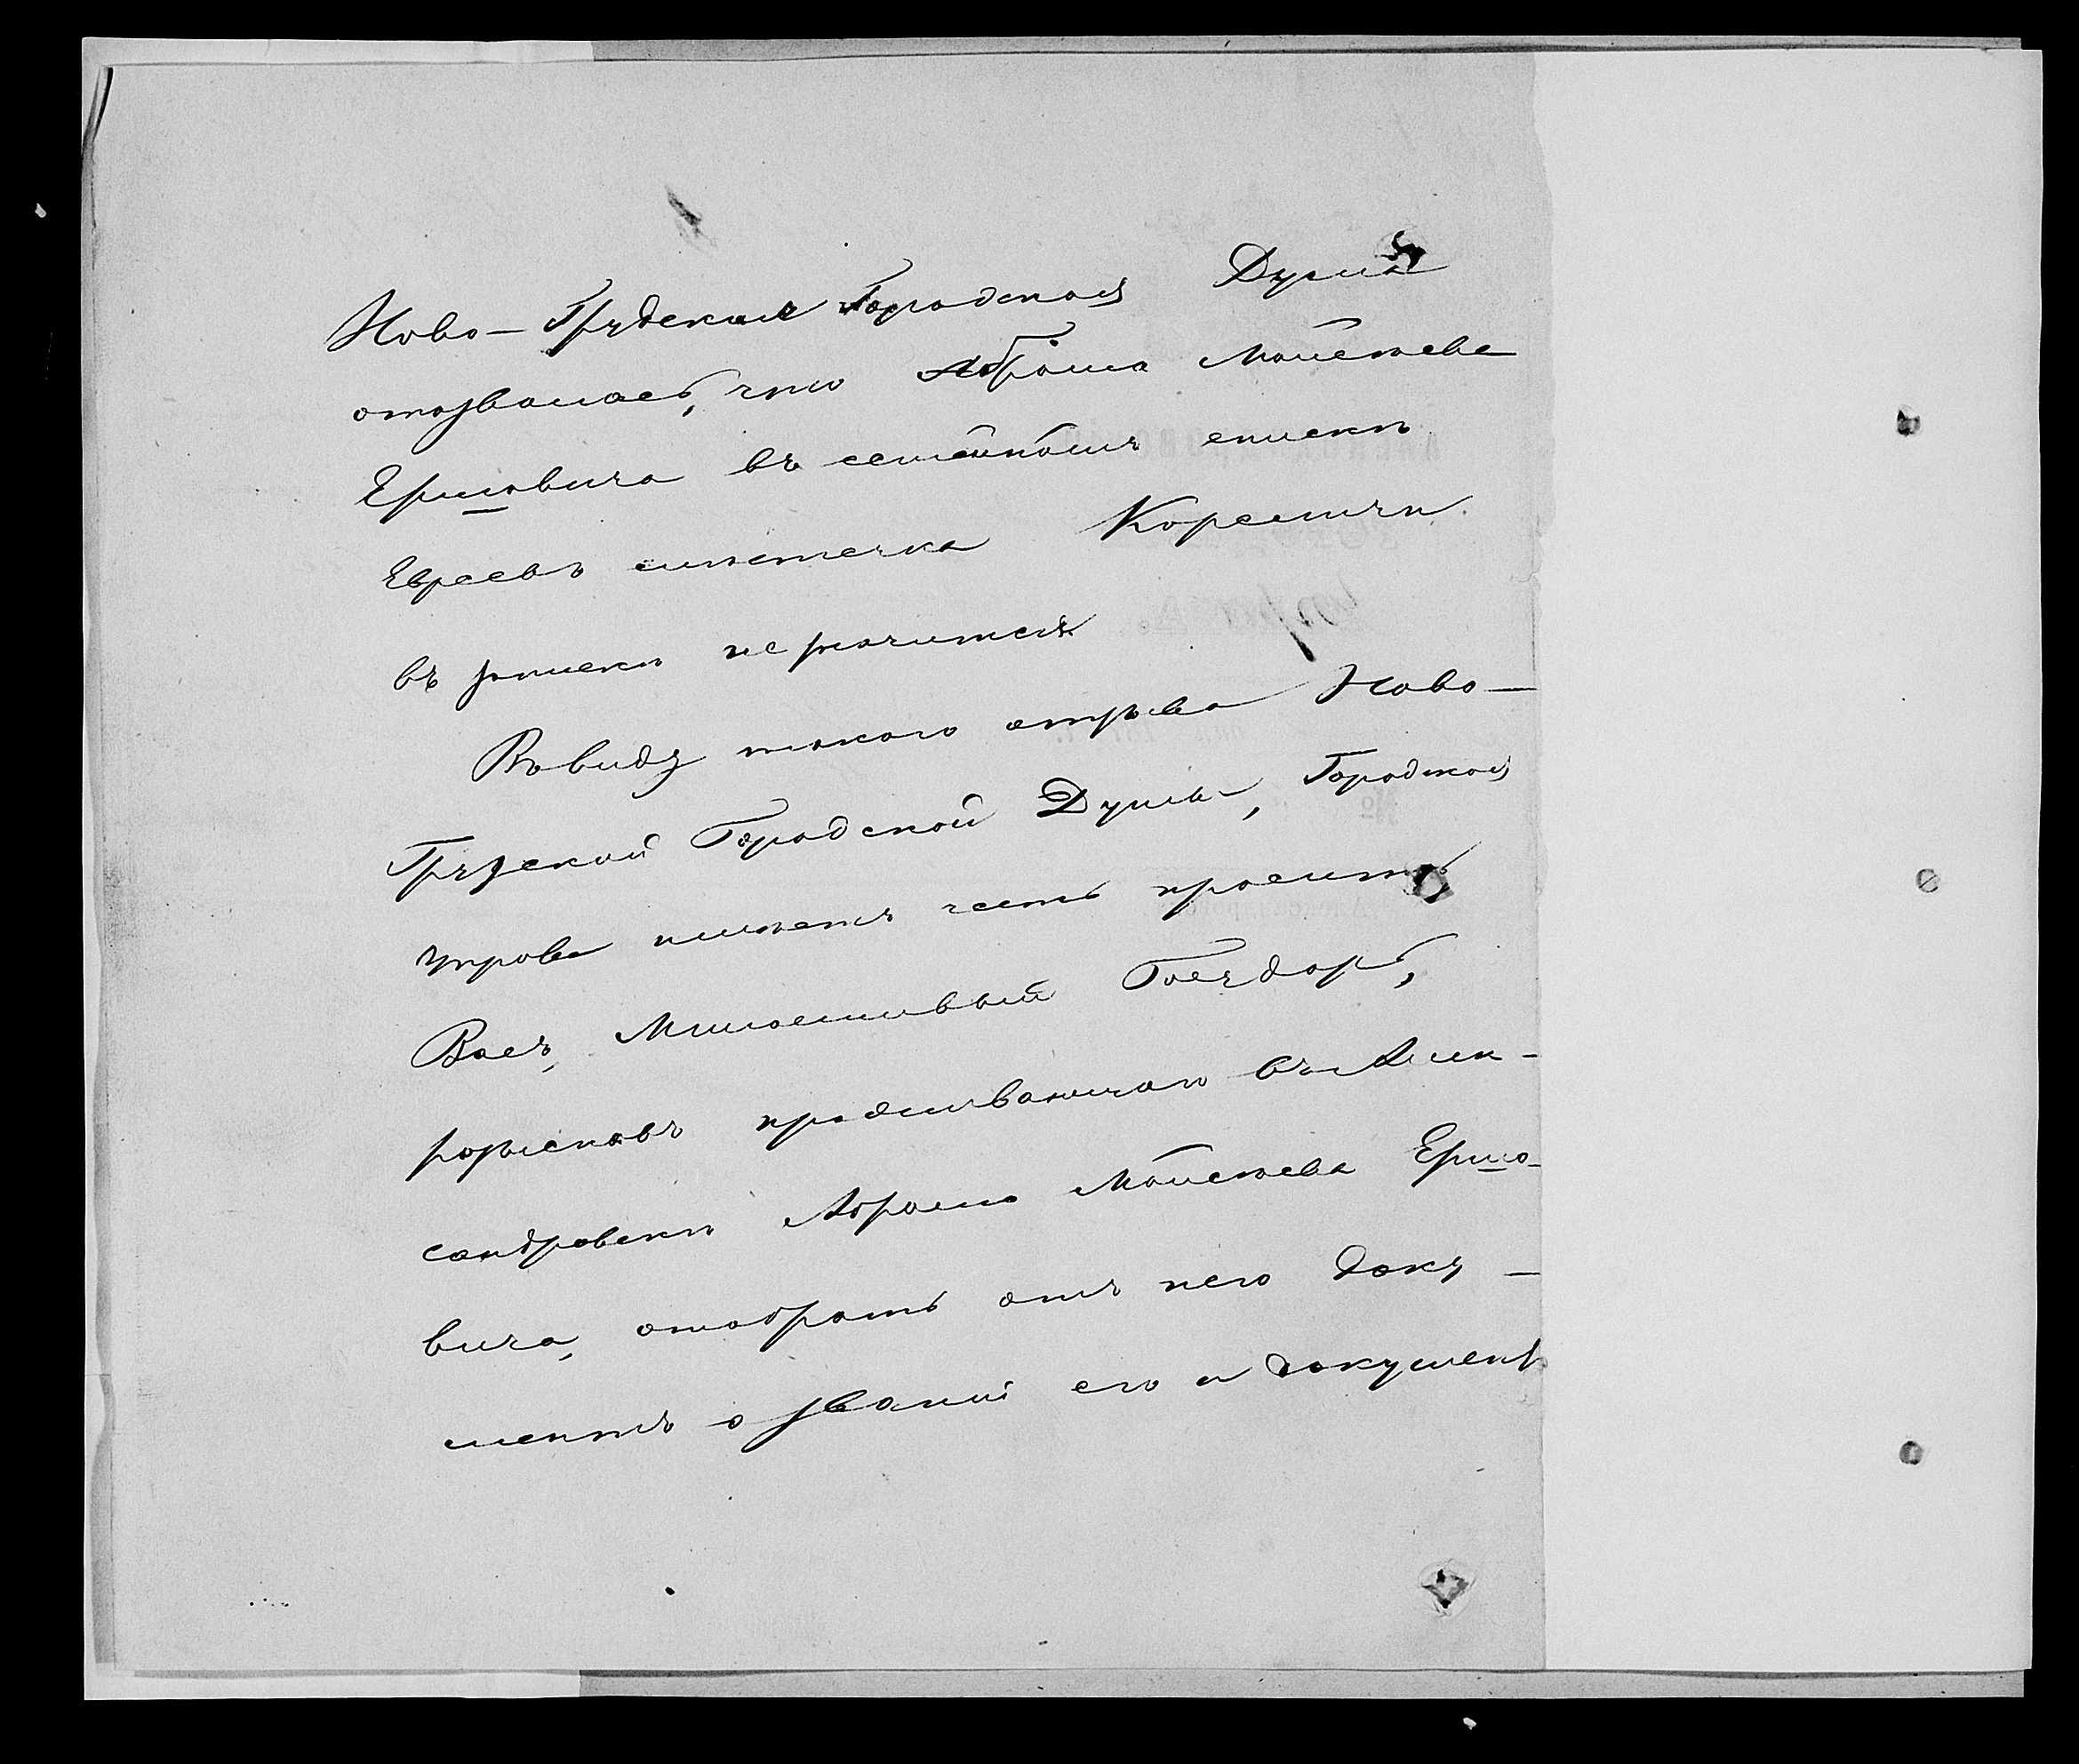 Ново-Грудская Городская Дума
отозвалась, что Абрама Мойсеева
Ермовича въ семейномъ списке
Евреевъ мѣстечка Кореличи
въ списке не значится
Въ виду такого отзыва Ново-
Грудской Городской Думы, Городская
Управа имѣетъ честь просить
Васъ, Милостивый Государь,
розыскавъ проживающаго въ Алек-
сандровскѣ Абрама Мойсеева Ермо-
вича, отобрать отъ него доку-
ментъ о званіи его и документ